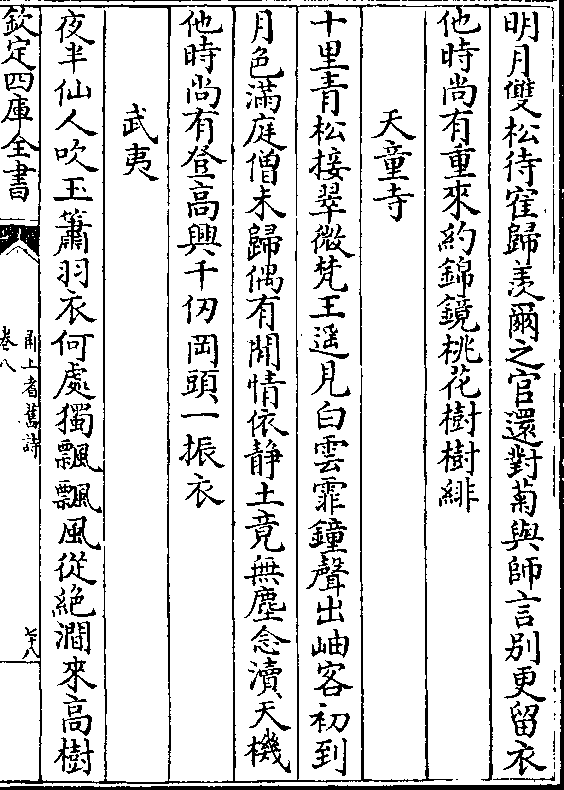 明月雙松待隺歸羨爾之官還對菊與師言别更留衣
他時尚有重來約錦鏡桃花樹樹緋
天童寺
十里青松接翠微梵王遥見白雲霏鐘聲出岫客初到
月色滿庭僧未歸偶有閒情依静土竟無塵念瀆天機
他時尚有登高興千仞岡頭一振衣
武夷
夜半仙人吹玉簫羽衣何處獨飄飄風從絶澗來高樹
欽定四庫全書
甬上耆舊詩
卷八